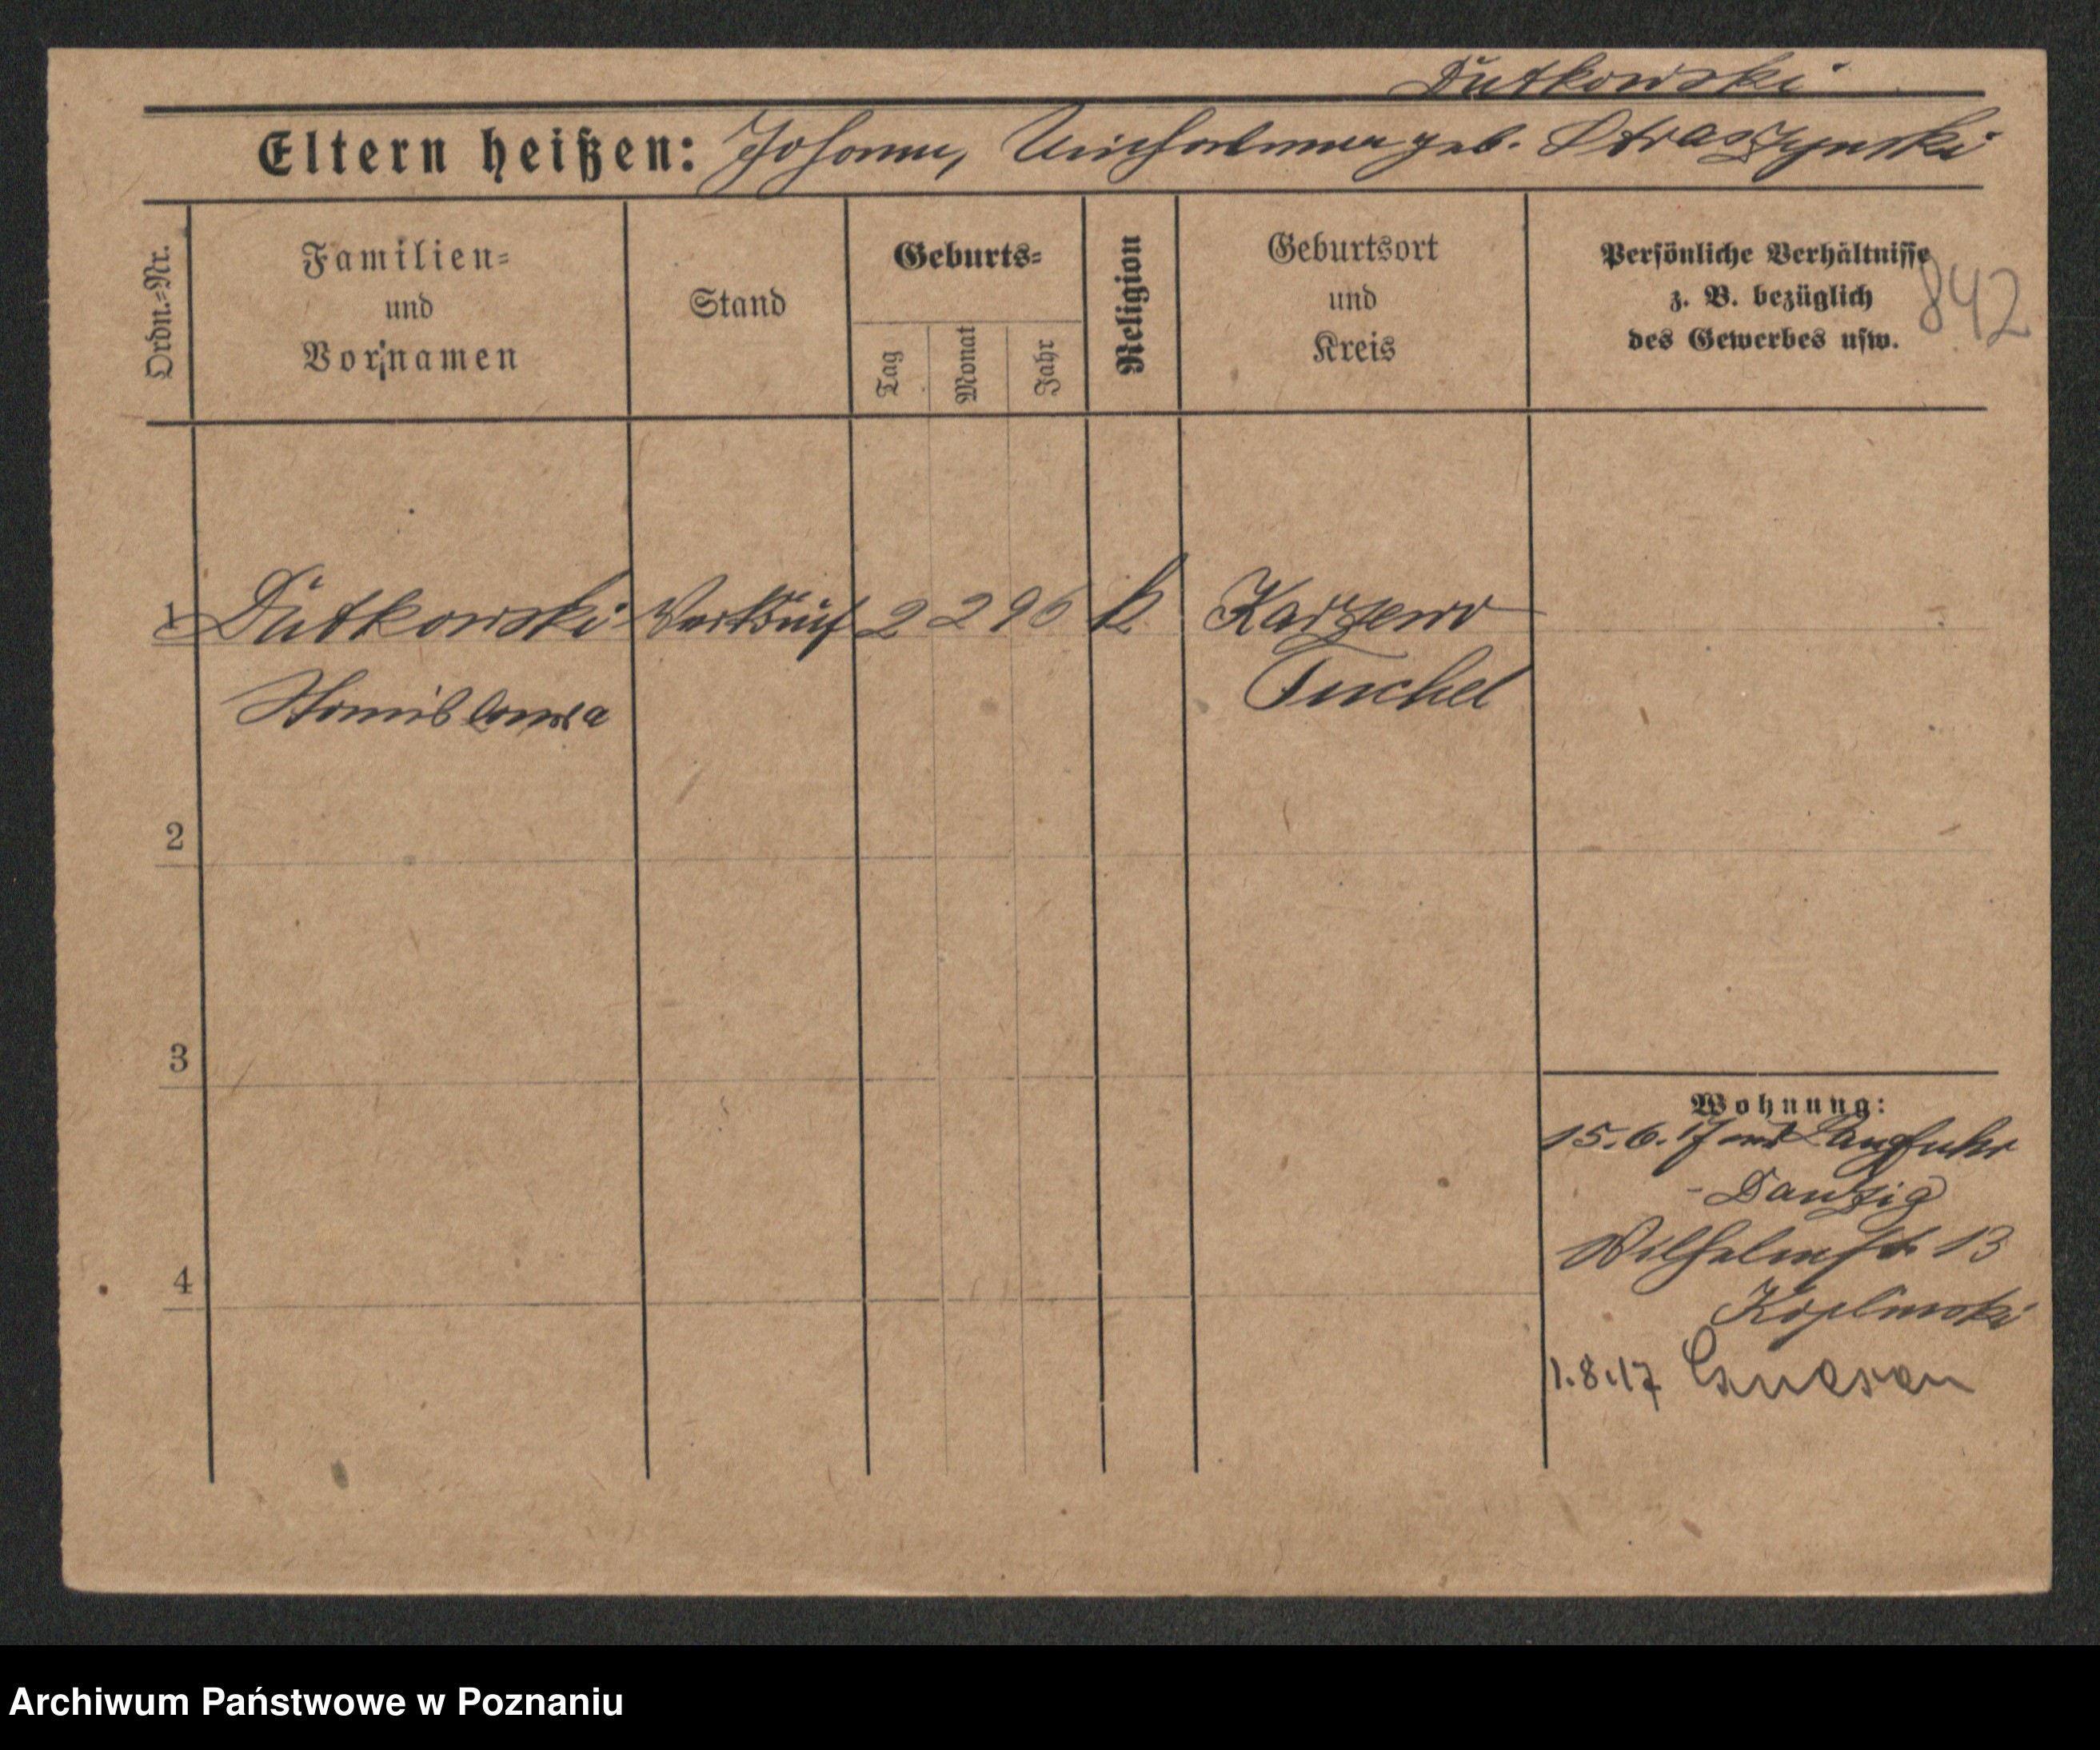 Dutkowski
Eltern heißen: Johann, geb. Straszynski
Ordn.=Nr.
Familien=
und
Vornamen
Stand
Geburts=
Tag
Monat
Jahr
Religion
Geburtsort
und
Kreis
Persönliche Verhältnisse
z. B. bezüglich
des Gewerbes usw.
842
1 Dutkowski 2 2 96 k
Tuchel
2
3
4
Wohnung:
15.6.17 Langfuhr
- Danzig
Wilhelmstr. 13
1.8.17 Gnesen
Archiwum Państwowe w Poznaniu